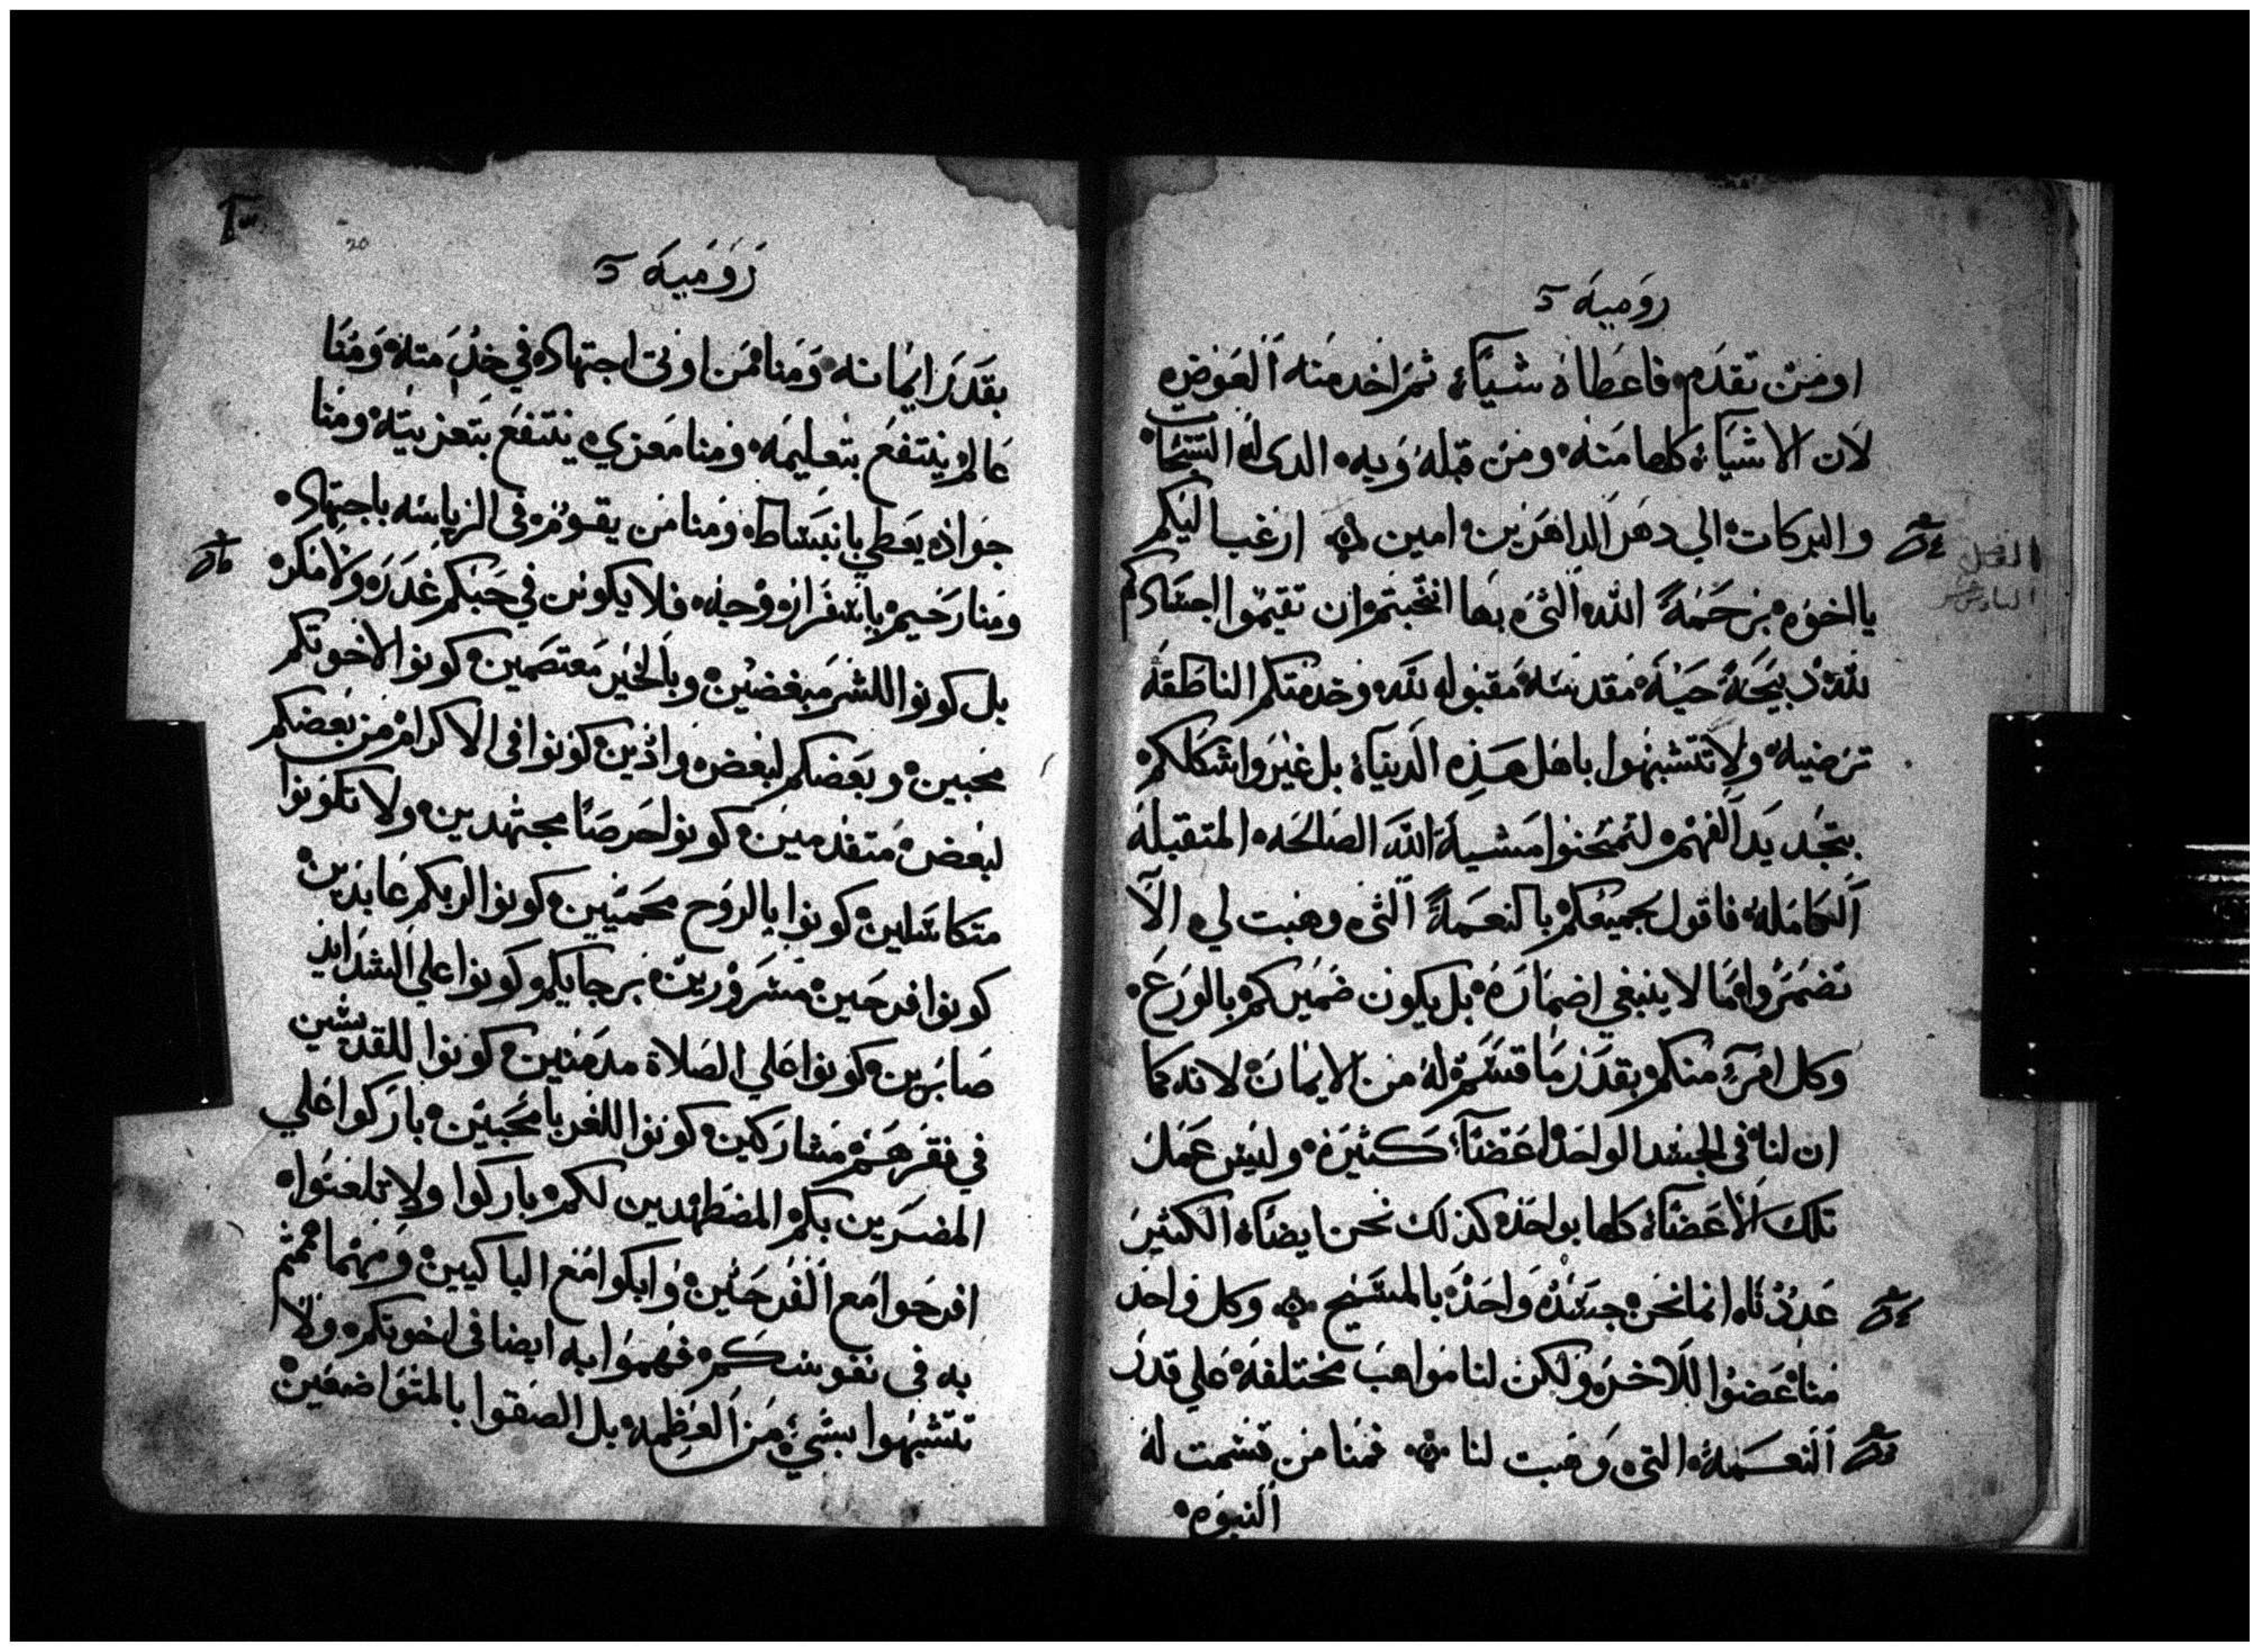 روميه
او من تقدم فاعطاه شياء ثم اخد منه العوض
لان الاشياء كلها منه ومن قبله وبه الدى له التسبحات
والبركات الي دهر الداهرين امين ارغب اليكم
يا اخوه برحمة الله التى بها انتخبتم ان تقيموا اجسادكم
لله دبيحة حية مقدسه مقبوله لله وخدمتكم الناطقه
ترضيه ولا تتشبهوا باهل هذه الدنياء بل غيروا اشكالكم
بتجديد الفهم لتمتحنوا مشية الله الصالحه المتقبله
الكامله فاقول لجميعكم بالنعمة التى وهبت لي الا
تضمروا ما لا ينبغي اضماره بل يكون ضميركم بالورع
وكل امرء منكم بقدر ما قسم له من الايمان لانه كما
ان لنا فى الجسد الواحد اعضاء كثيره وليس عمل
تلك الاعضاء كلها بواحده كذلك نحن ايضاء الكثير
عددنا انما نحن جسد واحد بالمسيح وكل واحد
منا عضوا للاخر ولكن لنا مواهب مختلفه علي قدر
النعمه التى وهبت لنا فمنا من قسمت له
النبوه
الفصل
السادس عشر
20
روميه
بقدر ايمانه ومنا من اوتى اجتهاده في خدمته ومنا
عالم ينتفع بتعليمه ومنا معزي ينتفع بتعزيته ومنا
جواد يعطي بانبساط ومنا من يقوم فى الرياسه باجتهاد
ومنا رحيم وجه فلا يكونن في حبكم غدر ولا مكر
بل كونوا للشر مبغضين وبالخير معتصمين كونوا لاخوتكم
محبين وبعضكم لبعض وادين كونوا فى الاكرام من بعضكم
لبعض متقدمين كونوا حرصا مجتهدين ولا تكونوا
متكاسلين كونوا بالروح محميين كونوا لربكم عابدين
كونوا فرحين مسرورين برجايكم وكونوا علي الشدايد
صابرين كونوا علي الصلاة مدمنين كونوا للقديسين
في فقرهم مشاركين كونوا للغربا محبين باركوا علي
المضرين بكم المضطهدين لكم باركوا ولا تلعنوا
افرحوا مع الفرحين وابكوا مع الباكيين ومهما هممتم
به فى نفوسكم فهموا به ايضا فى اخوتكم ولا
تتشبهوا بشيء من العظمه بل الصقوا بالمتواضعين